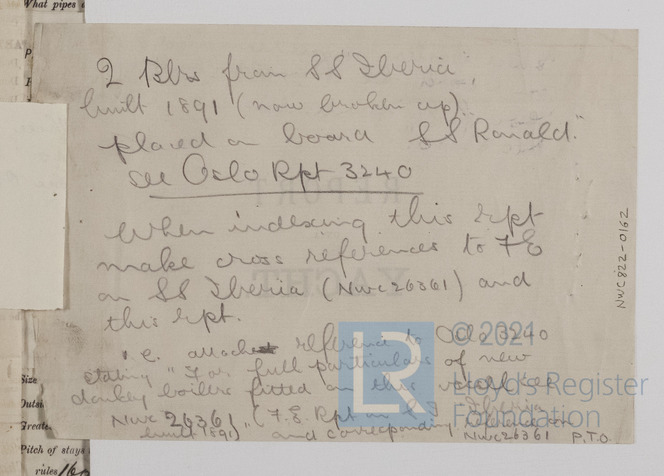 What pipes
2 Blrs from SS Iberia,
built 1891 (now broken up)
placed on board SS Ronald."
see Oslo Rpt 3240
When indexing this rpt
make cross references to FE
on SS Iberia (NWC26361) and
this rpt.
i.e. attached reference to Oslo 3240
stating "For full particulars of new
donkey boilers fitted on this vessel see
NWC 26361, (F.E. Rpt on SS Iberia
built 1891) and corresponding reference on
NWC26361 P.T.O.
NWC822-0162
REPORT
YACHT
Size
Pitch of stays
rules
LR
© 2024
Lloyd's Register
Foundation